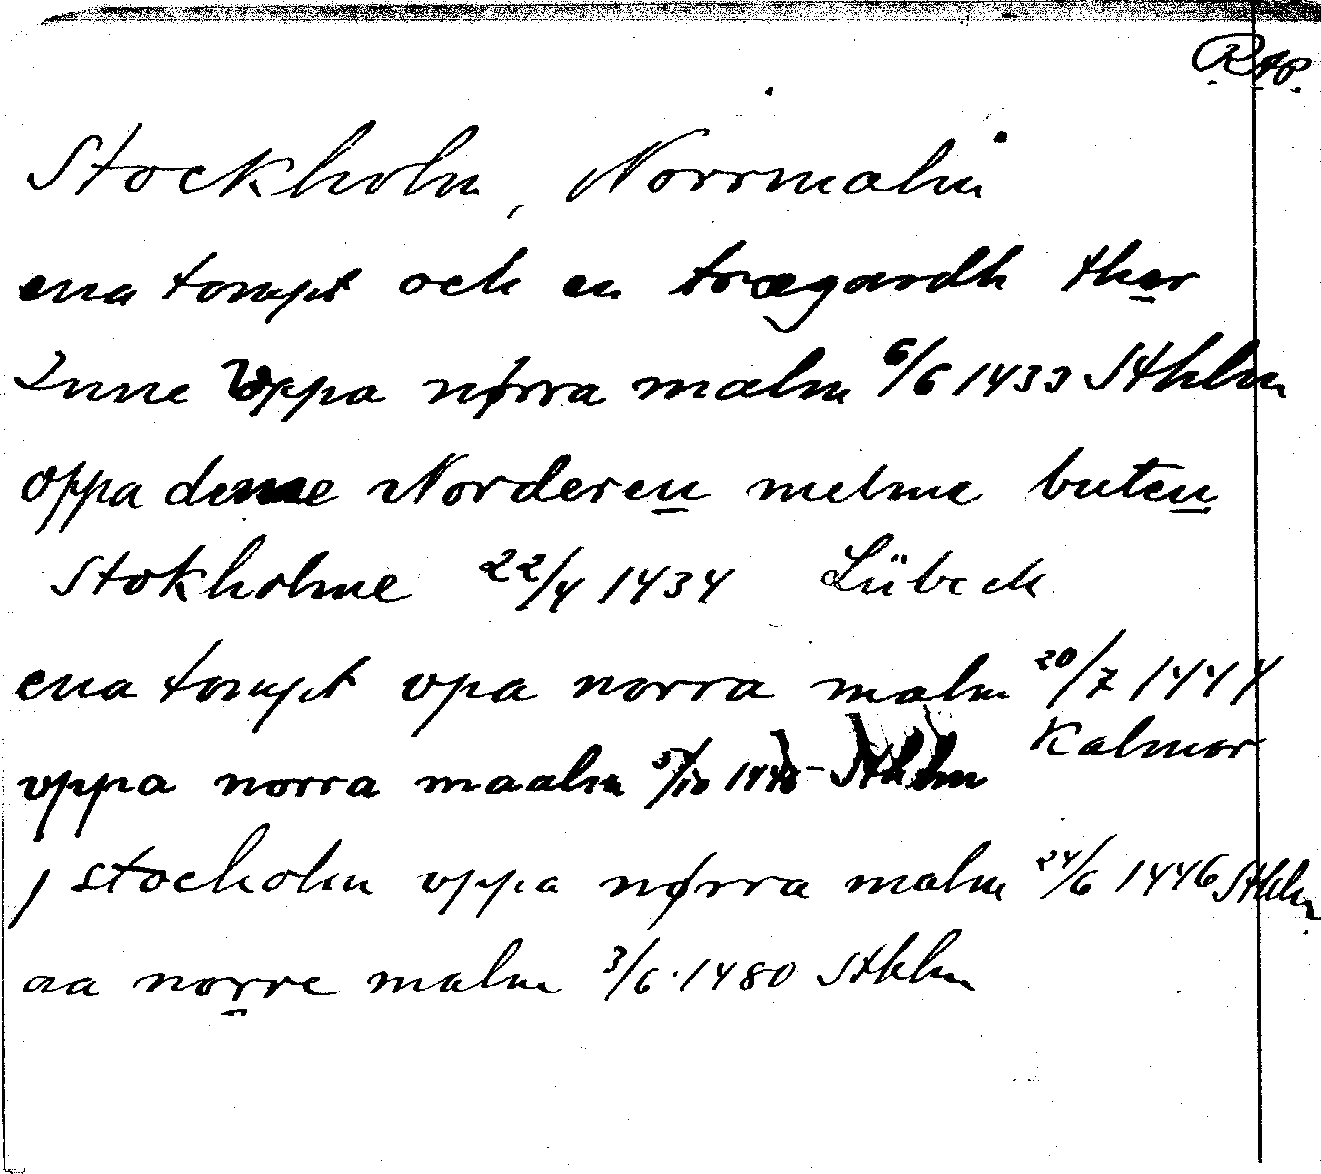 RAp.
Stockholm, Norrmalm
ena tompt och en trægardh ther
Inne vppa nørra malm 6/6 1433 Sthlm
oppa deme Norderen melme buten
Stokholme 22/4 1434 Lübeck
ena tompt vpa norra malm 20/7 1444
Kalmar
vppa norra maalm 5/10 Sthlm
j stocholm vppa nørra malm 24/6 1446 Sthlm
aa norre malm 3/6 1480 Sthlm